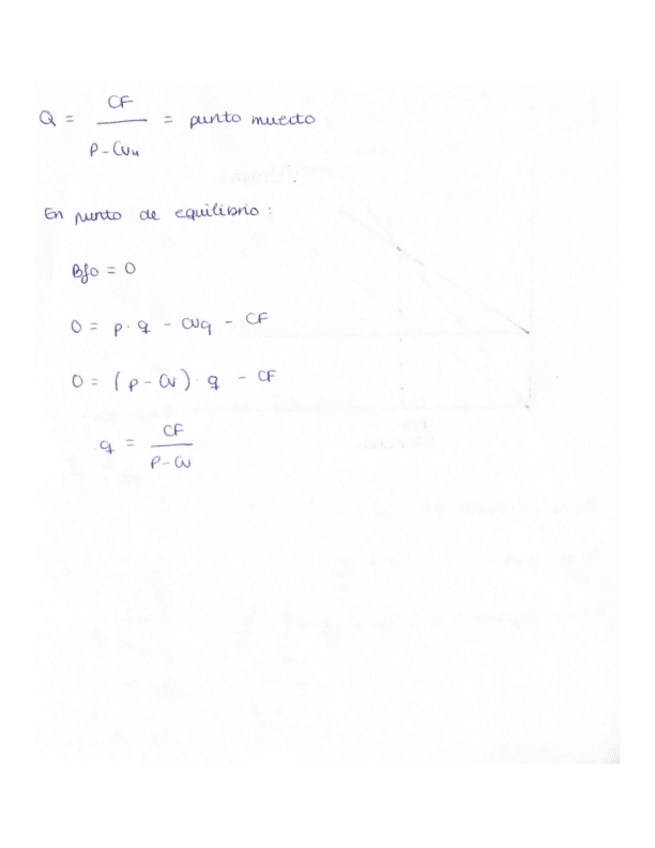 Q = CF / P - Cvu = punto muerto
En punto de equilibrio :
Bfo = 0
0 = p · q - Cvq - CF
0 = ( p - Cv ) · q - CF
q = CF / P - Cv